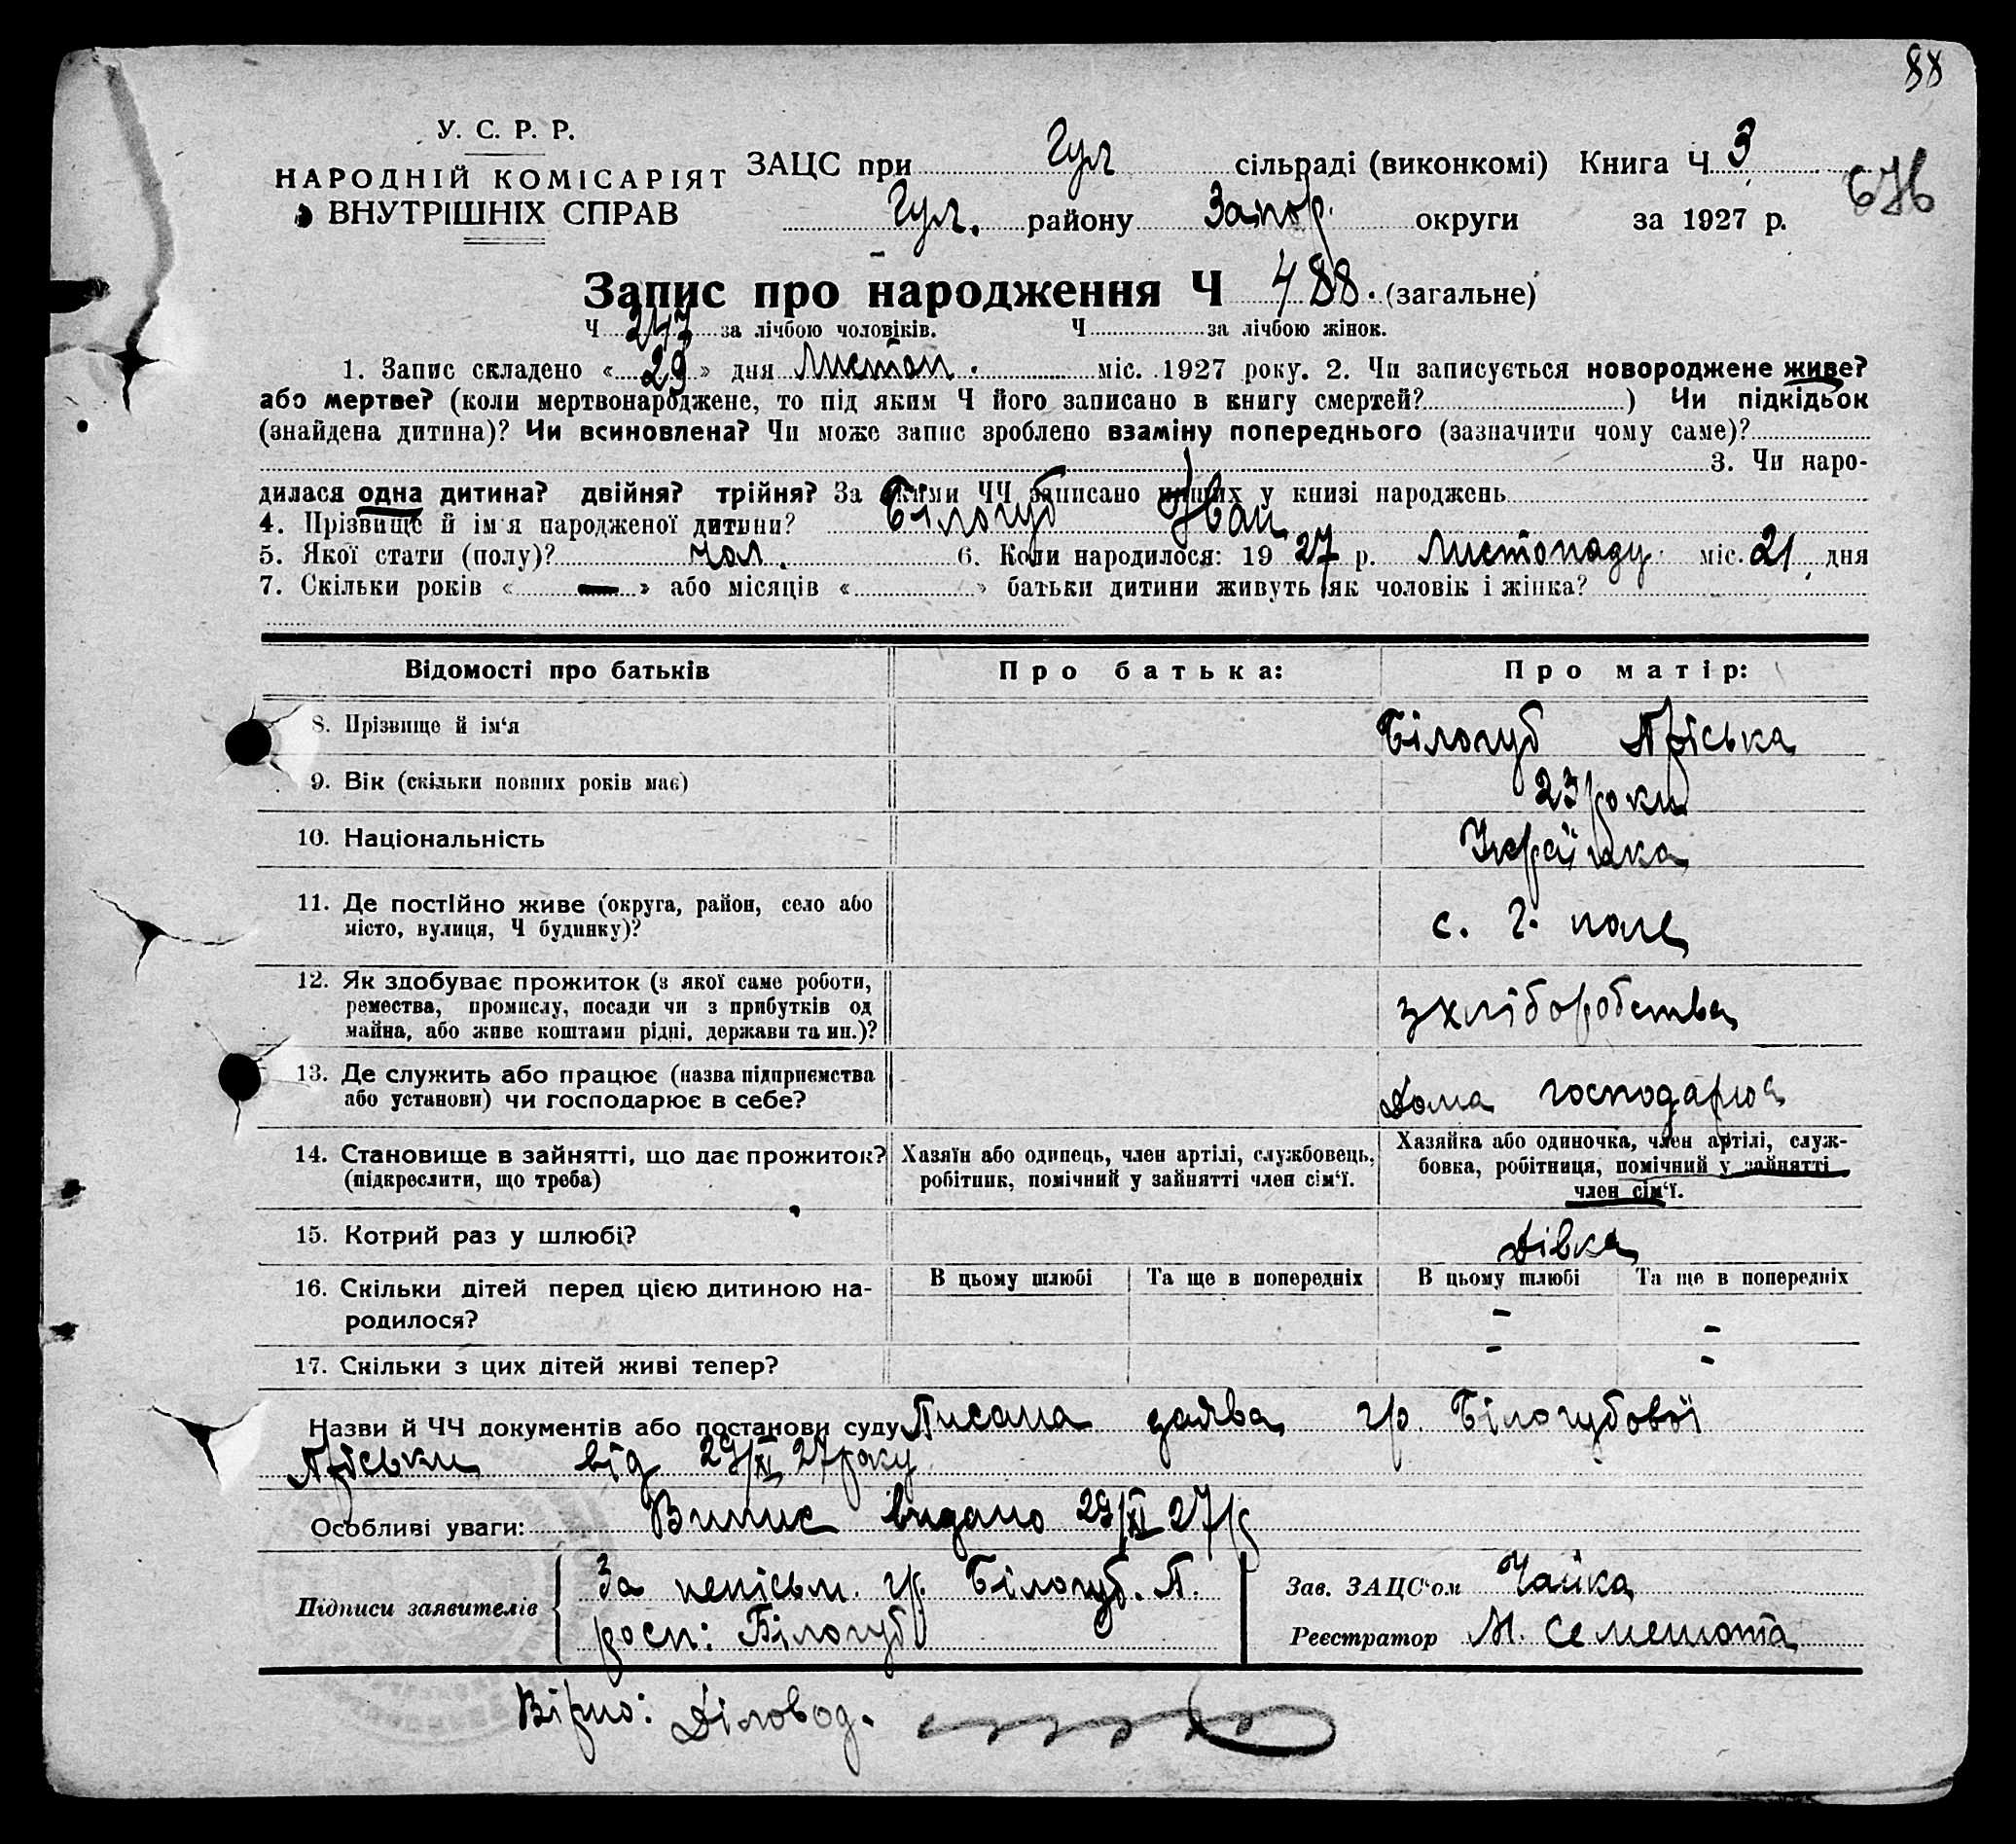 88
У. С. Р. Р.
НАРОДНІЙ КОМІСАРІЯТ
ВНУТРІШНІХ СПРАВ
ЗАЦС при Гул сільраді (виконкомі) Книга Ч 3
Гул. району Запор. округи за 1927 р.
Запис про народження Ч 488. (загальне)
Ч 247 за лічбою чоловіків. Ч за лічбою жінок.
1. Запис складено «29» дня Листоп. міс. 1927 року. 2. Чи записується новороджене живе?
або мертве? (коли мертвонароджене, то під яким Ч його записано в книгу смертей? ) Чи підкідьок
(знайдена дитина)? Чи всиновлена? Чи може запис зроблено взаміну попереднього (зазначити чому саме)?
3. Чи наро-
дилася одна дитина? двійня? трійня? За якими ЧЧ записано инших у книзі народжень
4. Прізвище й ім'я народженої дитини? Білогуб Іван
5. Якої стати (полу)? чол. 6. Коли народилося: 1927 р. Листопаду міс. 21 дня
7. Скільки років « — » або місяців « » батьки дитини живуть як чоловік і жінка?
Відомості про батьків Про батька: Про матір:
8. Прізвище й ім'я Білогуб Пріська
9. Вік (скільки повних років має) 23 роки
10. Національність Українка
11. Де постійно живе (округа, район, село або
місто, вулиця, Ч будинку)? с. Г. поле
12. Як здобуває прожиток (з якої саме роботи,
ремества, промислу, посади чи з прибутків од
майна, або живе коштами рідні, держави та ин.)? з хліборобства
13. Де служить або працює (назва підприємства
або установи) чи господарює в себе? Дома господарює
14. Становище в зайнятті, що дає прожиток?
(підкреслити, що треба)
Хазяїн або одинець, член артілі, службовець,
робітник, помічний у зайнятті член сім'ї.
Хазяйка або одиночка, член артілі, служ-
бовка, робітниця, помічний у зайнятті
член сім'ї.
15. Котрий раз у шлюбі? Дівка
16. Скільки дітей перед цією дитиною на-
родилося?
В цьому шлюбі Та ще в попередніх В цьому шлюбі Та ще в попередніх
- -
17. Скільки з цих дітей живі тепер? - -
Назви й ЧЧ документів або постанови суду Писана заява гр. Білогубової
Пріськи від 29/XI 27 року
Особливі уваги: Випис видано 29/XI 27 р
Підписи заявителів За непісьм. гр. Білогуб. П.
росп: Білогуб
Зав. ЗАЦС'ом Чайка
Реєстратор М. Семешота
Вірно: Діловод.